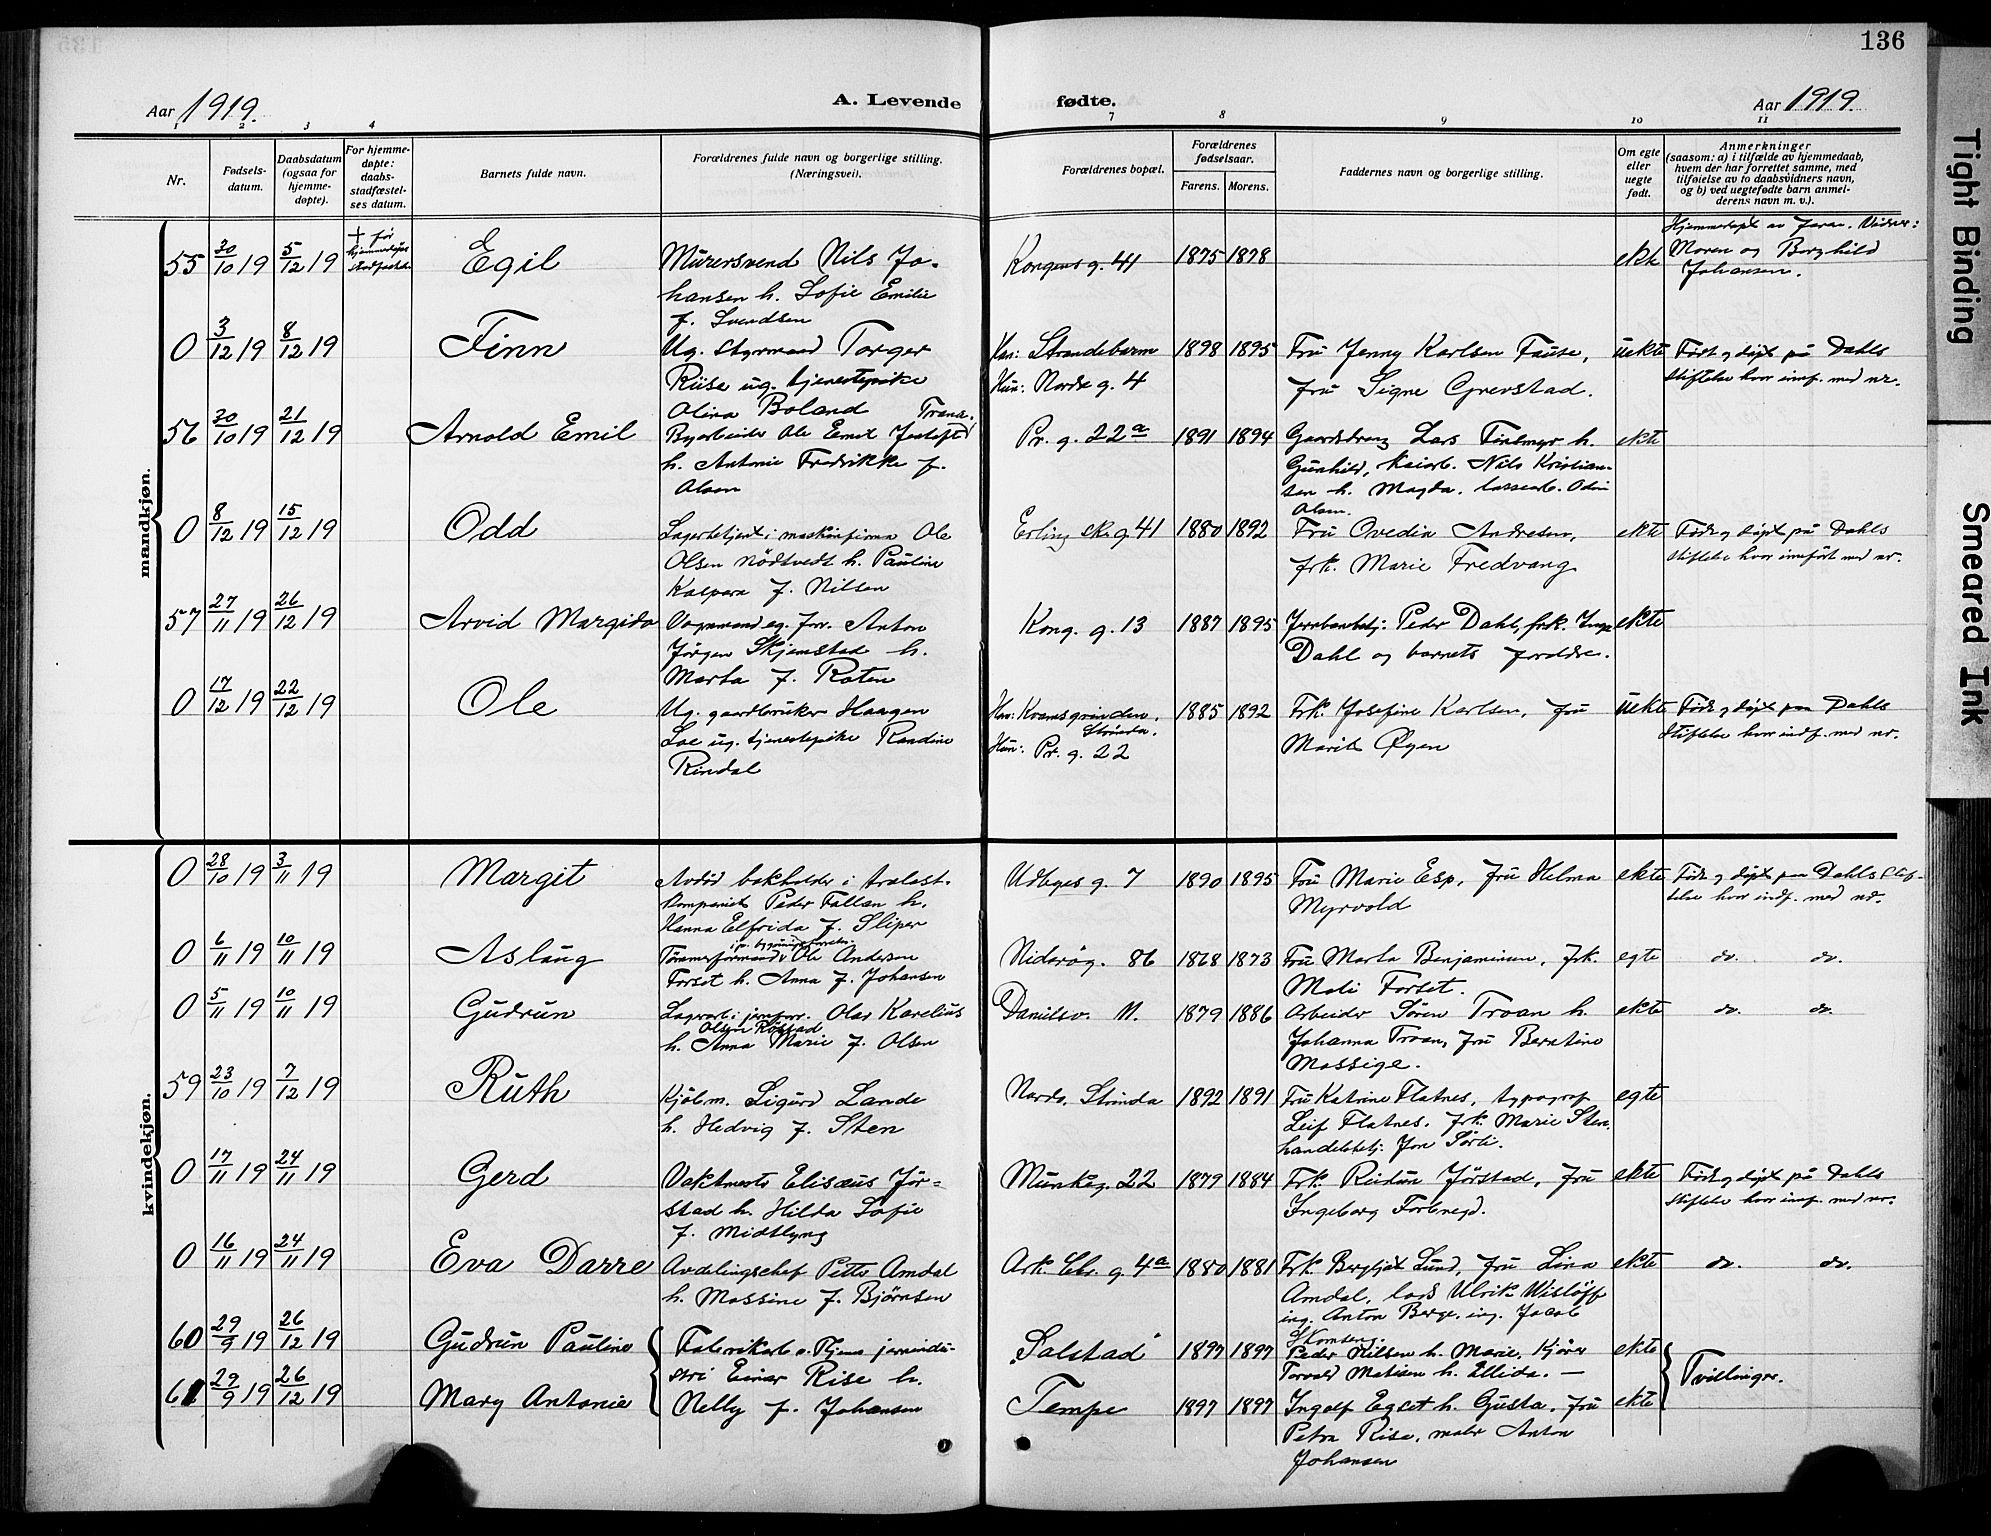 136
Aar 1919.
A. Levende fødte.
Aar 1919.
1 2 3 4 7 8 9 10 11
Nr.
Fødsels-
datum.
Daabsdatum
(ogsaa for
hjemme-
døpte).
For hjemme-
døpte:
daabs-
stadfæstel-
ses datum.
Barnets fulde navn.
Forældrenes fulde navn og borgerlige stilling.
(Næringsvei).
Forældrenes bopæl.
Forældrenes
fødselsaar.
Farens. Morens.
Faddernes navn og borgerlige stilling.
Om egte
eller
uegte
født.
Anmerkninger
(saasom: a) i tilfælde av hjemmedaab,
hvem der har forrettet samme, med
tilføielse av to daabsvidners navn,
og b) ved uegtefødte barn anmel-
derens navn m. v.).
mandkjøn.
55 30/10 19 5/12 19 + før
Egil
Murersvend Nils Jo-
hansen h. Sofie Emilie
f. Svendsen
Kongens g. 41 1875 1878 ekte
Moren og Borghild
Johansen.
0 3/12 19 8/12 19 Finn
Ug. styrmand Torger
Riise ug. tjenestepike
Olina Boland
Han: Strandebarm
Hun: Nordre g. 4
1898 1895
Fru Jenny Karlsen Fause,
fru Signe Grevstad.
uekte
Født og døpt på Dahls
stiftelse hvor innf. med nr.
56 30/10 19 21/12 19 Arnold Emil
Byarbeider Ole Emil
h. Antonie Fredrikke f.
Olsen
Pr. g. 22a 1891 1894
Gaardsdreng Lars h.
Gunhild, kaiarb. Nils Kristian-
sen h. Magda, Odin
Olsen.
ekte
0 8/12 19 15/12 19 Odd
Lagerbetjent i maskinfirma Ole
Olsen Nödtvedt h. Pauline
Kaspara f. Nilsen
Erling Sk. g 41 1880 1892
Fru Ovedia Andresen,
frk. Marie Fredvang
ekte
Født og døpt på Dahls
stiftelse hvor innført med nr.
57 27/11 19 26/12 19 Arvid Margido
Vognmand eg. forr. Anton
Jørgen Skjemstad h.
Marta f. Røten
Kong. g. 13 1887 1895
Jernbanebetj: Peder Dahl, frk. Inga
Dahl og barnets forældre.
ekte
0 17/12 19 22/12 19 Ole
Ug. gaardbruker Haagen
Loe ug. tjenestepike Randine
Rindal
Han: Kvamsgrinden,
Strinda.
Hun: Pr. g. 22
1885 1892
Frk. Josefine Karlsen, fru
Marit Øyen
uekte
Født og døpt paa Dahls
Stiftelse hvor indf. med nr.
kvindekjøn.
0 28/10 19 3/11 19 Margit
Avdød bokholder i trælast-
kompaniet Peder Fallan h.
Hanna Elfrida f. Sliper
Udbyes g. 7 1890 1895
Fru Marie Esp, fru Helma
Myrvold
ekte
Født og døpt paa Dahls Stif-
telse hvor indf. med nr.
0 6/11 19 10/11 19 Aslaug
Tömmerformand Ole Andersen
Forset h. Anna f. Johansen
Nidarøg. 86 1868 1873
Fru Marta Benjaminsen, frk.
Mali Forset.
egte do. do.
0 5/11 19 10/11 19 Gudrun
Lagerarb. i jernforr. Olav Karelius
Olsen Røstad
h. Anna Marie f. Olsen
Danielsv. 11. 1879 1886
Arbeider Sören Troan h.
Johanna Troan, fru Beratine
Mossige.
ekte do. do.
59 23/10 19 7/12 19 Ruth
Kjölm. Sigurd Lande
h. Hedvig f. Sten
Nardo, Strinda 1892 1891
Fru Katrine Flatnes, typograf
Leif Flatnes, frk. Marie Sten,
handelsbetj. Jon Sørli.
egte
0 17/11 19 24/11 19 Gerd
Vaktmester Elisæus Jør-
stad h. Hilda Sofie
f. Midtlyng
Munkeg. 22 1879 1884
Frk. Reidun Jørstad, fru
Ingeborg Forbregd.
ekte
Født og døpt på Dahls
stiftelse hvor innf. med nr.
0 16/11 19 24/11 19 Eva Darre
Avdelingschef Petter Amdal
h. Massine f. Bjørnsen
Ark. Chr. g. 4a 1880 1881
Frk. Bergljot Lund, fru Lina
Amdal, lods Ulrik Wisløff
ing. Anton Berge, ing. Jacob
Skomsen.
ekte do. do.
60 29/9 19 26/12 19 Gudrun Pauline
Fabrikarb. v. Hjem jernindu-
stri Einar Rise h.
Nelly f. Johansen
Salstad 1897 1897
Peder Nilsen h. Marie, Kjører
Torvald Matisen h. Ellida. —
ekte
61 29/9 19 26/12 19 Mary Antonie
Tempe 1897 1897
Ingolf Egset h. Gusta, fru
Petra Rise, maler Anton
Johansen
ekte
Tvillinger.
Tight Binding
Smeared Ink